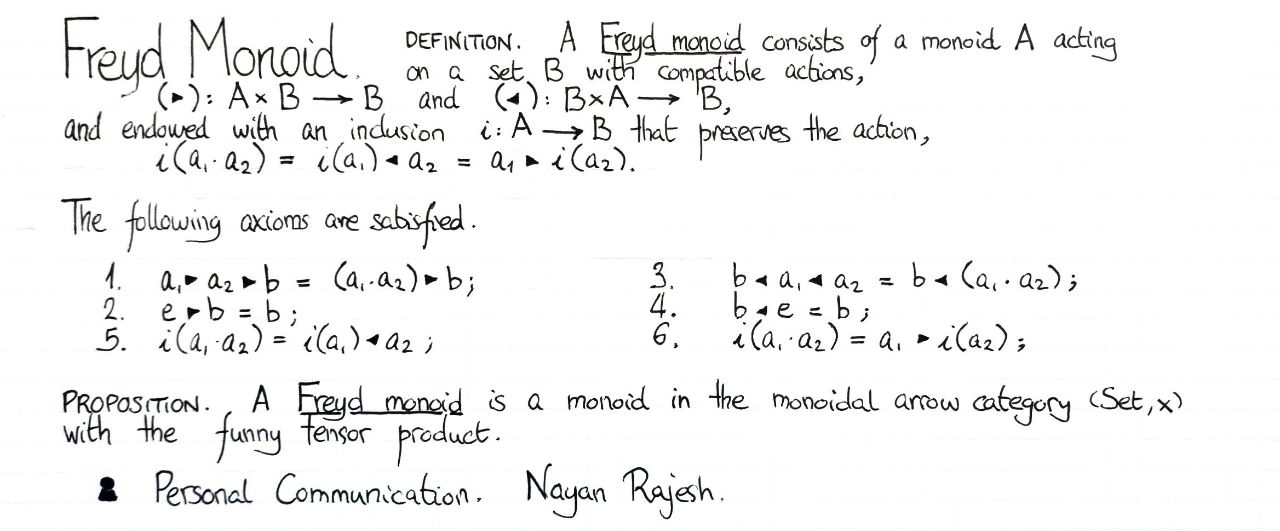 Freyd Monoid. DEFINITION. A Freyd monoid consists of a monoid A acting
on a set B with compatible actions,
(▸): A × B → B and (◂): B×A → B,
and endowed with an inclusion i: A → B that preserves the action,
i(a₁· a₂) = i(a₁) ◂ a₂ = a₁ ▸ i(a₂).
The following axioms are satisfied.
1. a₁▸ a₂ ▸ b = (a₁·a₂) ▸ b;
3. b ◂ a₁ ◂ a₂ = b ◂ (a₁ · a₂);
2. e ▸ b = b;
4. b ◂ e = b;
5. i(a₁·a₂) = i(a₁) ◂ a₂;
6. i(a₁·a₂) = a₁ ▸ i(a₂);
PROPOSITION. A Freyd monoid is a monoid in the monoidal arrow category (Set,×)
with the funny tensor product.
Personal Communication. Nayan Rajesh.